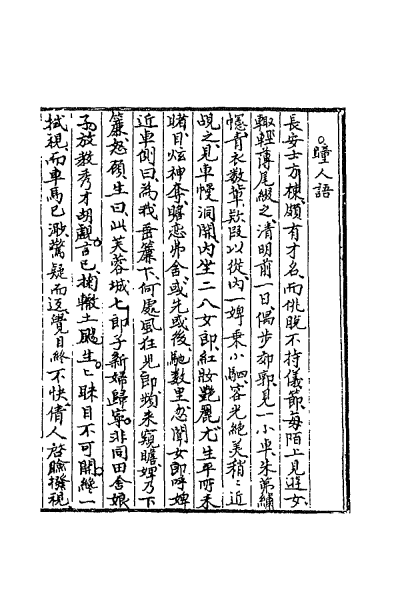 瞳人語
長安士方棟頗有才名而佻脫不持儀節每陌上見遊女
輒輕薄尾綴之清明前一日偶步郊郭見一小車朱茀繡
幰青衣數輩款段以從內一婢乘小駟容光絕美稍稍近
覘之見車幔洞開內坐二八女郎紅妝艷麗尤生平所未
睹目炫神奪瞻戀弗舍或先或後馳數里忽聞女郎呼婢
近車側曰為我垂簾下何處風狂兒郎頻來窺瞻婢乃下
簾怒顧生曰此芙蓉城七郎子新婦歸寧非同田舍娘
子放教秀才胡覷言已掬轍土颺生生眯目不可開纔一
拭視而車馬已渺驚疑而返覺目終不快倩人啓瞼撥視